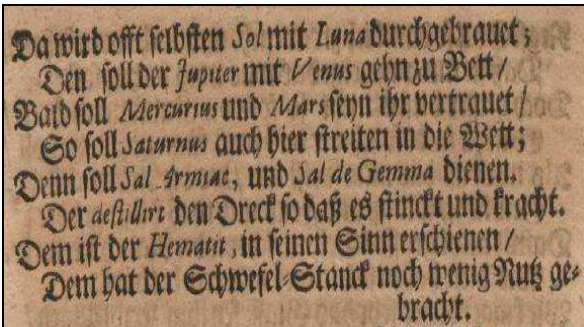 Da wird offt selbsten Sol mit Luna durchgebrauet;
Den soll der Jupiter mit Venus gehn zu Bett /
Bald soll Mercurius und Mars seyn ihr vertrauet /
So soll Saturnus auch hier streiten in die Wett;
Denn soll Sal Armiac, und Sal de Gemma dienen.
Der destillirt den Dreck so daß es stinckt und kracht.
Dem ist der Hematit, in seinen Sinn erschienen /
Dem hat der Schwefel-Stanck noch wenig Nutz ge-
bracht.